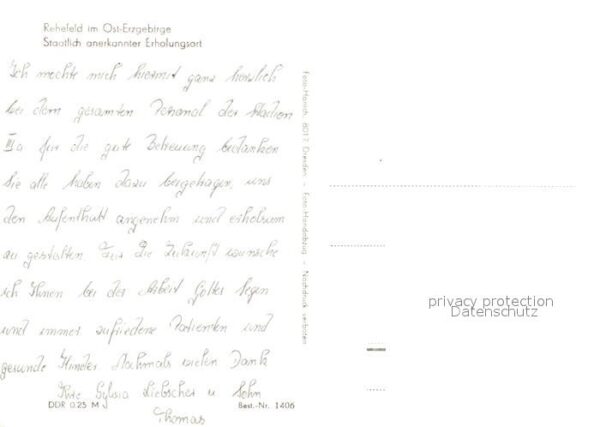 Rehefeld im Ost-Erzgebirge
Staatlich anerkannter Erholungsort
Ich möchte mich hiermit ganz herzlich
bei dem gesamten Personal der Station
IIIa für die gute Betreuung bedanken
Sie alle haben dazu beigetragen, uns
den Aufenthalt angenehm und erholsam
zu gestalten. Für die Zukunft wünsche
ich Ihnen bei der Arbeit Gottes Segen
und immer zufriedene Patienten und
gesunde Kinder. Nochmals vielen Dank
Ihre Sylvia Liebscher u. Sohn
Thomas
DDR 0.25 M
Best.-Nr. 1406
Foto-Hanich, 8017 Dresden - Foto-Handabzug - Nachdruck verboten
privacy protection
Datenschutz